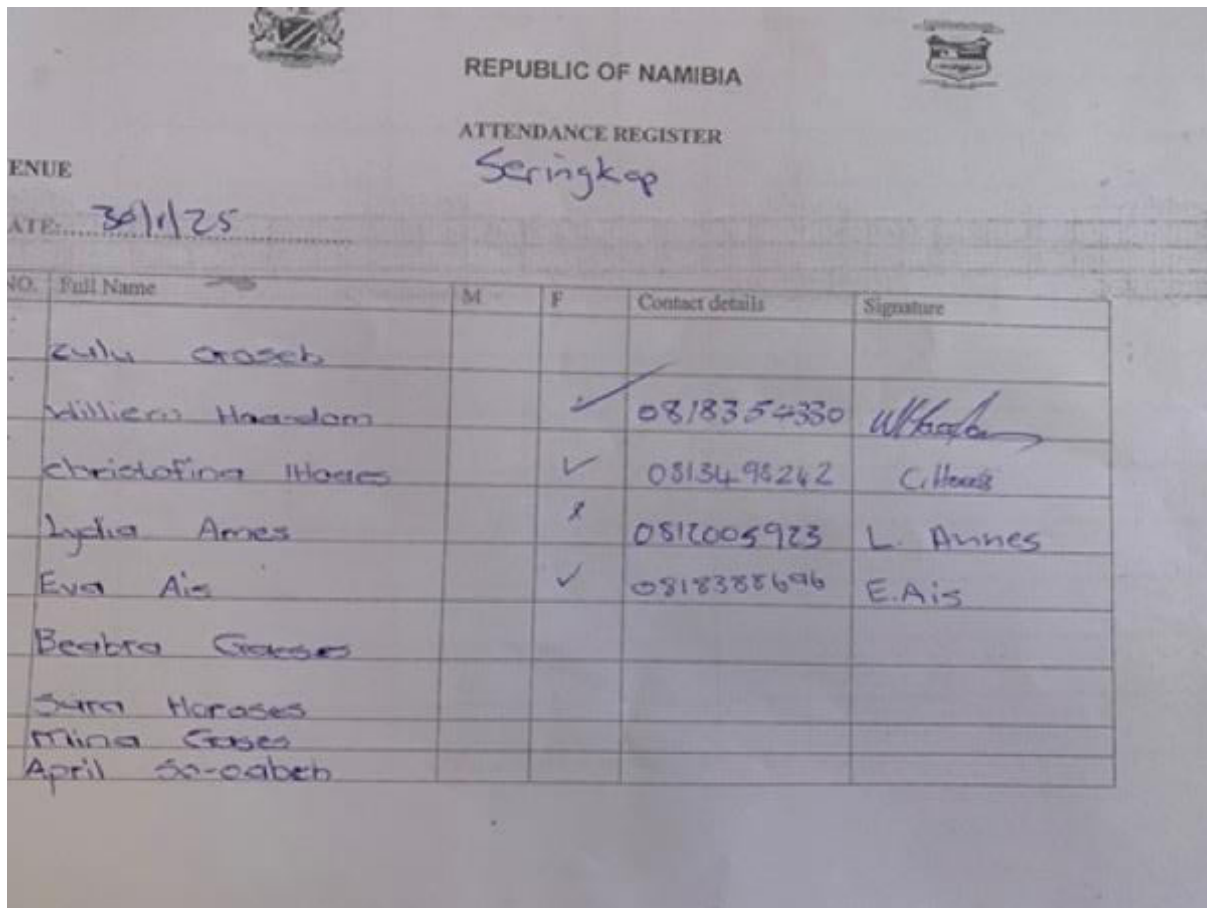 REPUBLIC OF NAMIBIA
ATTENDANCE REGISTER
ENUE Seringkop
ATE: 30/1/25
NO. Full Name M F Contact details Signature
Zulu Goaseb
Williem Haardom ✓ 0818354330
Christofina ✓ 0813498242 C. Hoaës
Lydia Annes x 0812005923 L. Annes
Eva Ais ✓ 0818388696 E. Ais
Beabra Gaeses
Sara Haroses
Mina Gases
April So-oabeb